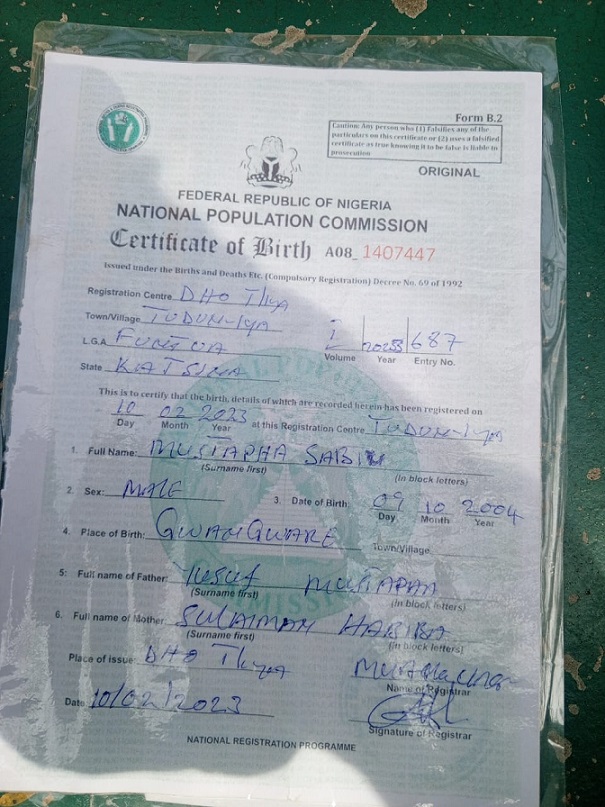 Form B.2
Caution: Any person who (1) falsifies any of the
particulars on this certificate or (2) uses a falsified
certificate as true knowing it to be false is liable to
prosecution
ORIGINAL
FEDERAL REPUBLIC OF NIGERIA
NATIONAL POPULATION COMMISSION
Certificate of Birth A08_ 1407447
Issued under the Births and Deaths Etc. (Compulsory Registration) Decree No. 69 of 1992
Registration Centre DHO
Town/Village TUDUN-Iya
L.G.A. FUNTUA
Volume Year Entry No. 687
State KATSINA
This is to certify that the birth, details of which are recorded herein has been registered on
10 02 2023 at this Registration Centre TUDUN-Iya
Day Month Year
1. Full Name: MUSTAPHA SABIU
(Surname first) (In block letters)
2. Sex: MALE 3. Date of Birth: 09 10 2004
Day Month Year
4. Place of Birth: GWAN GWARE Town/Village
5: Full name of Father: YUSUF MUSTAPHA
(Surname first) (in block letters)
6. Full name of Mother: SULAIMAN HABIBA
(Surname first) (in block letters)
Place of issue: DHO
Name of Registrar
Date 10/02/2023
Signature of Registrar
NATIONAL REGISTRATION PROGRAMME